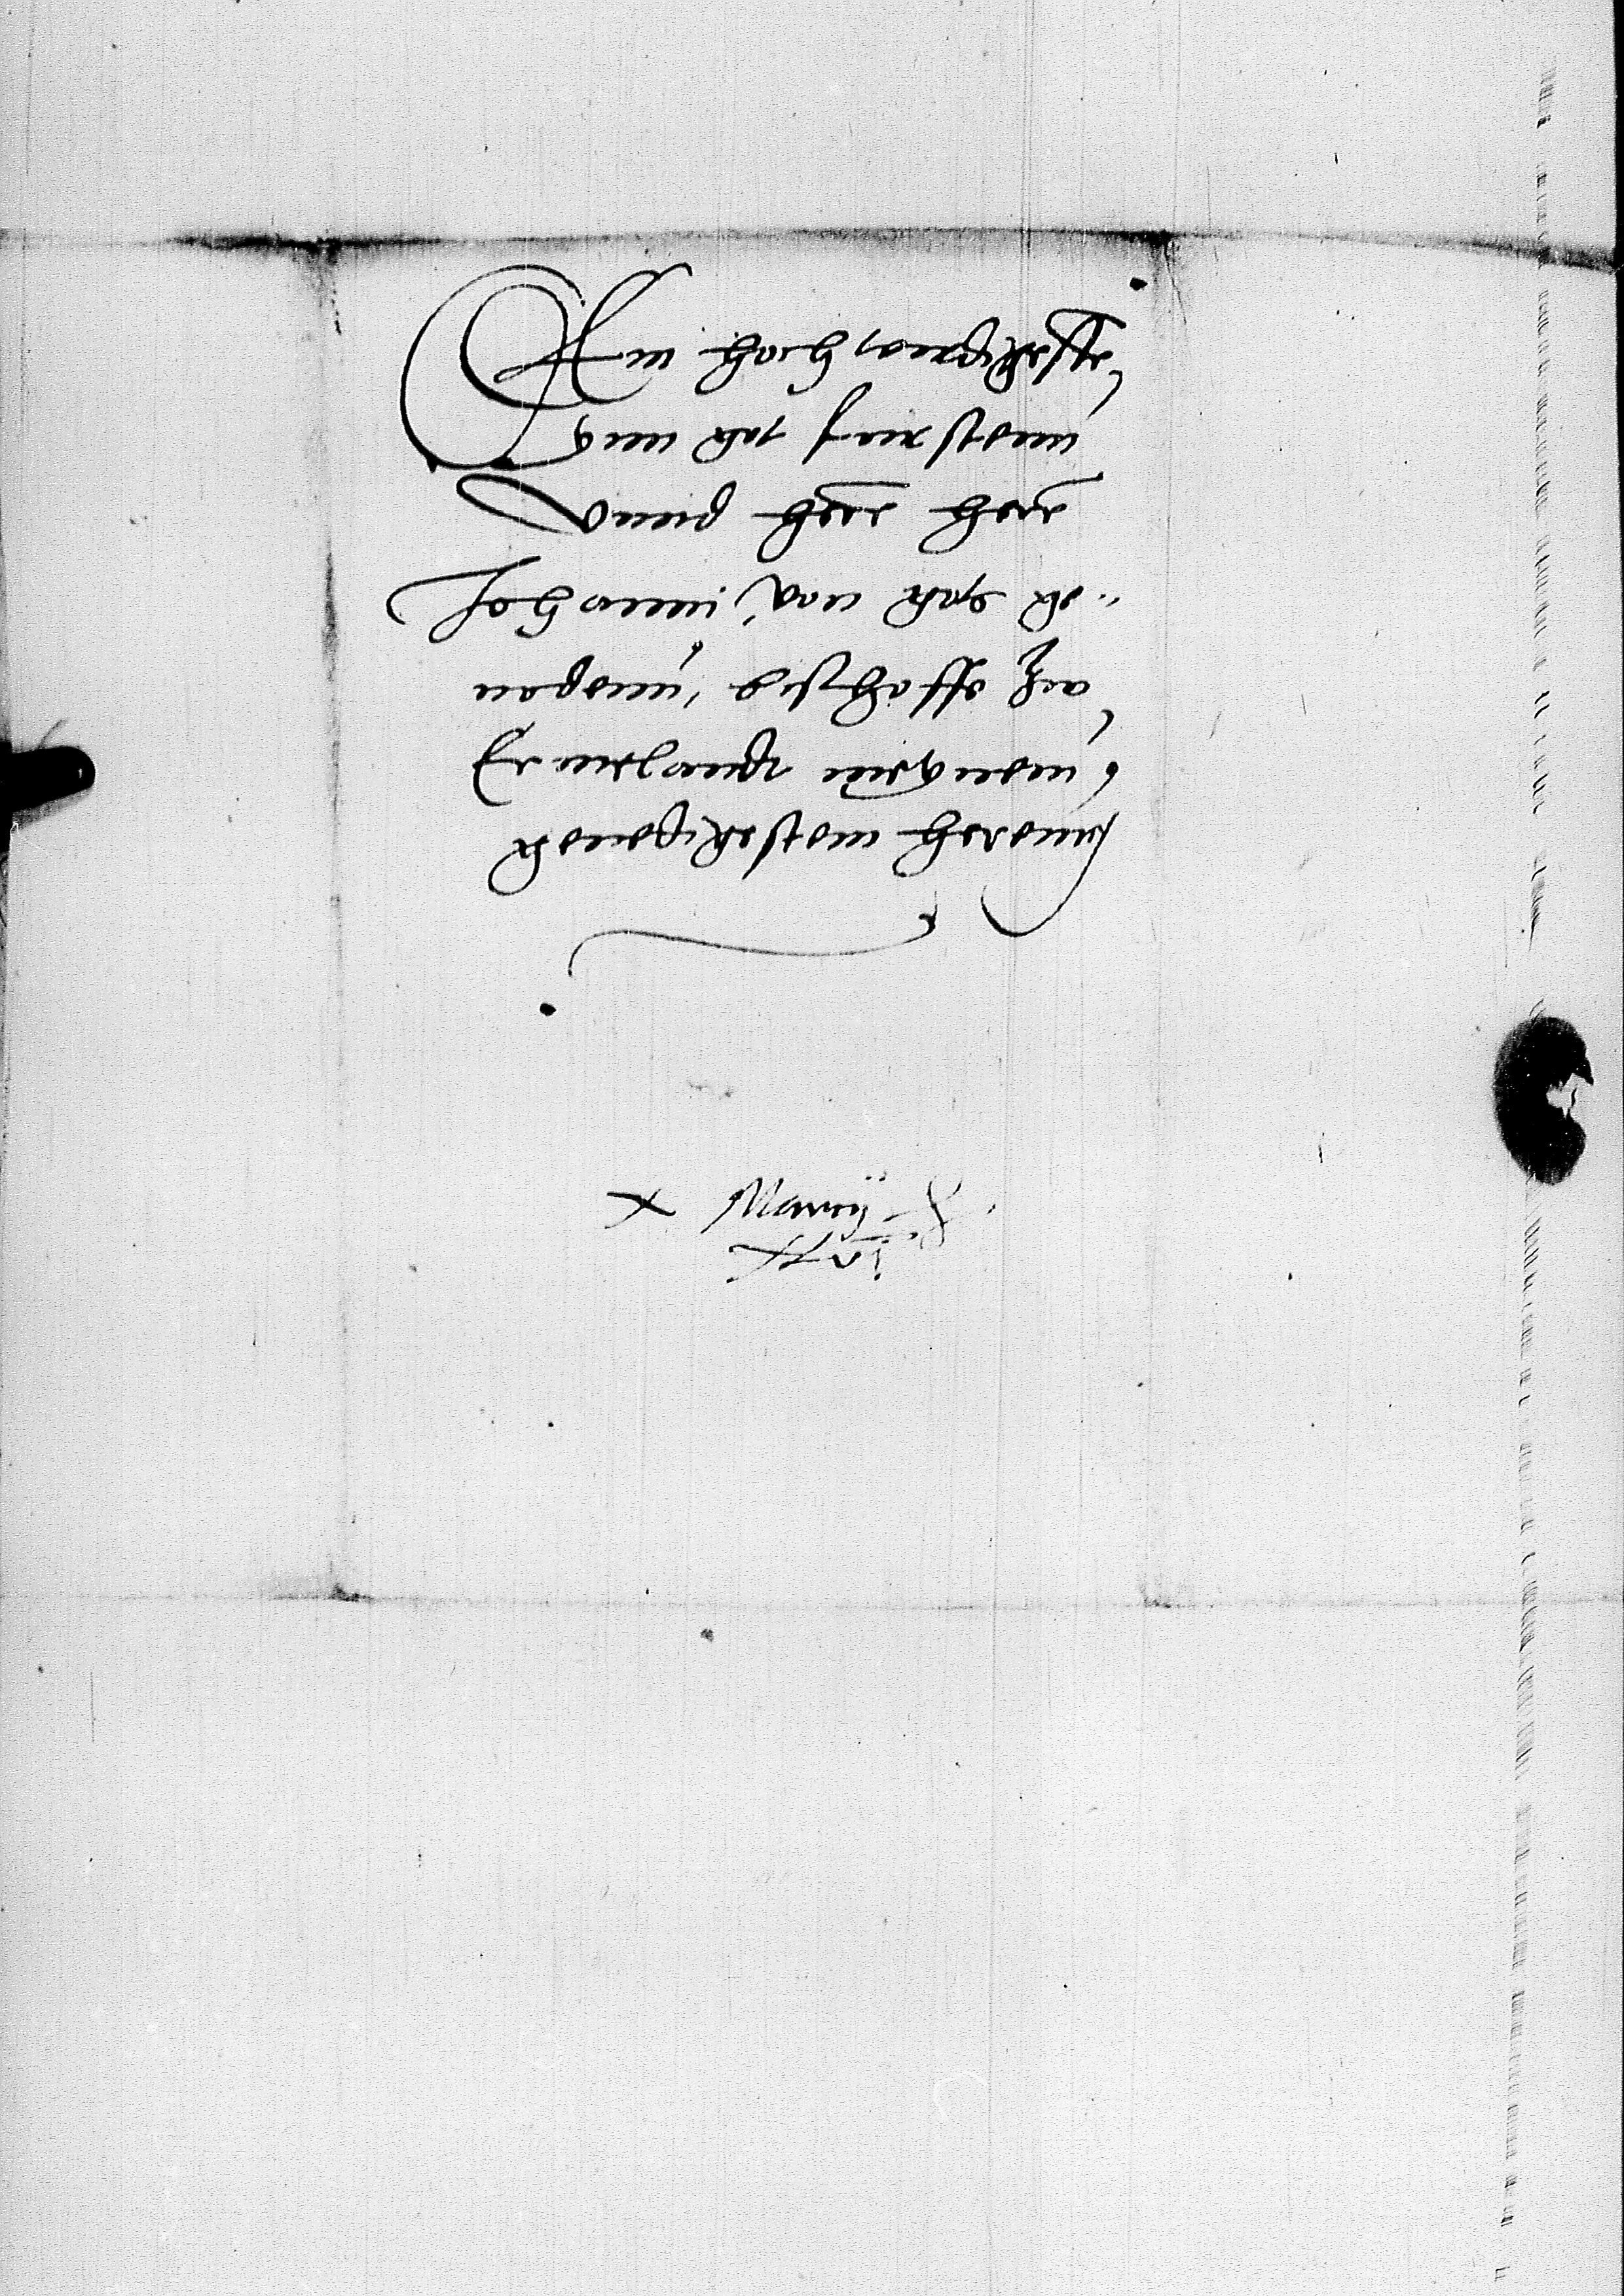 Am hoch wirdigeste
ynn got furstenn
Vnnd herr herr
Johanni, von gots ge..
nodenn, bischoffe zcu
Ermelandt meynem
genedigestem herenn
x Marcij